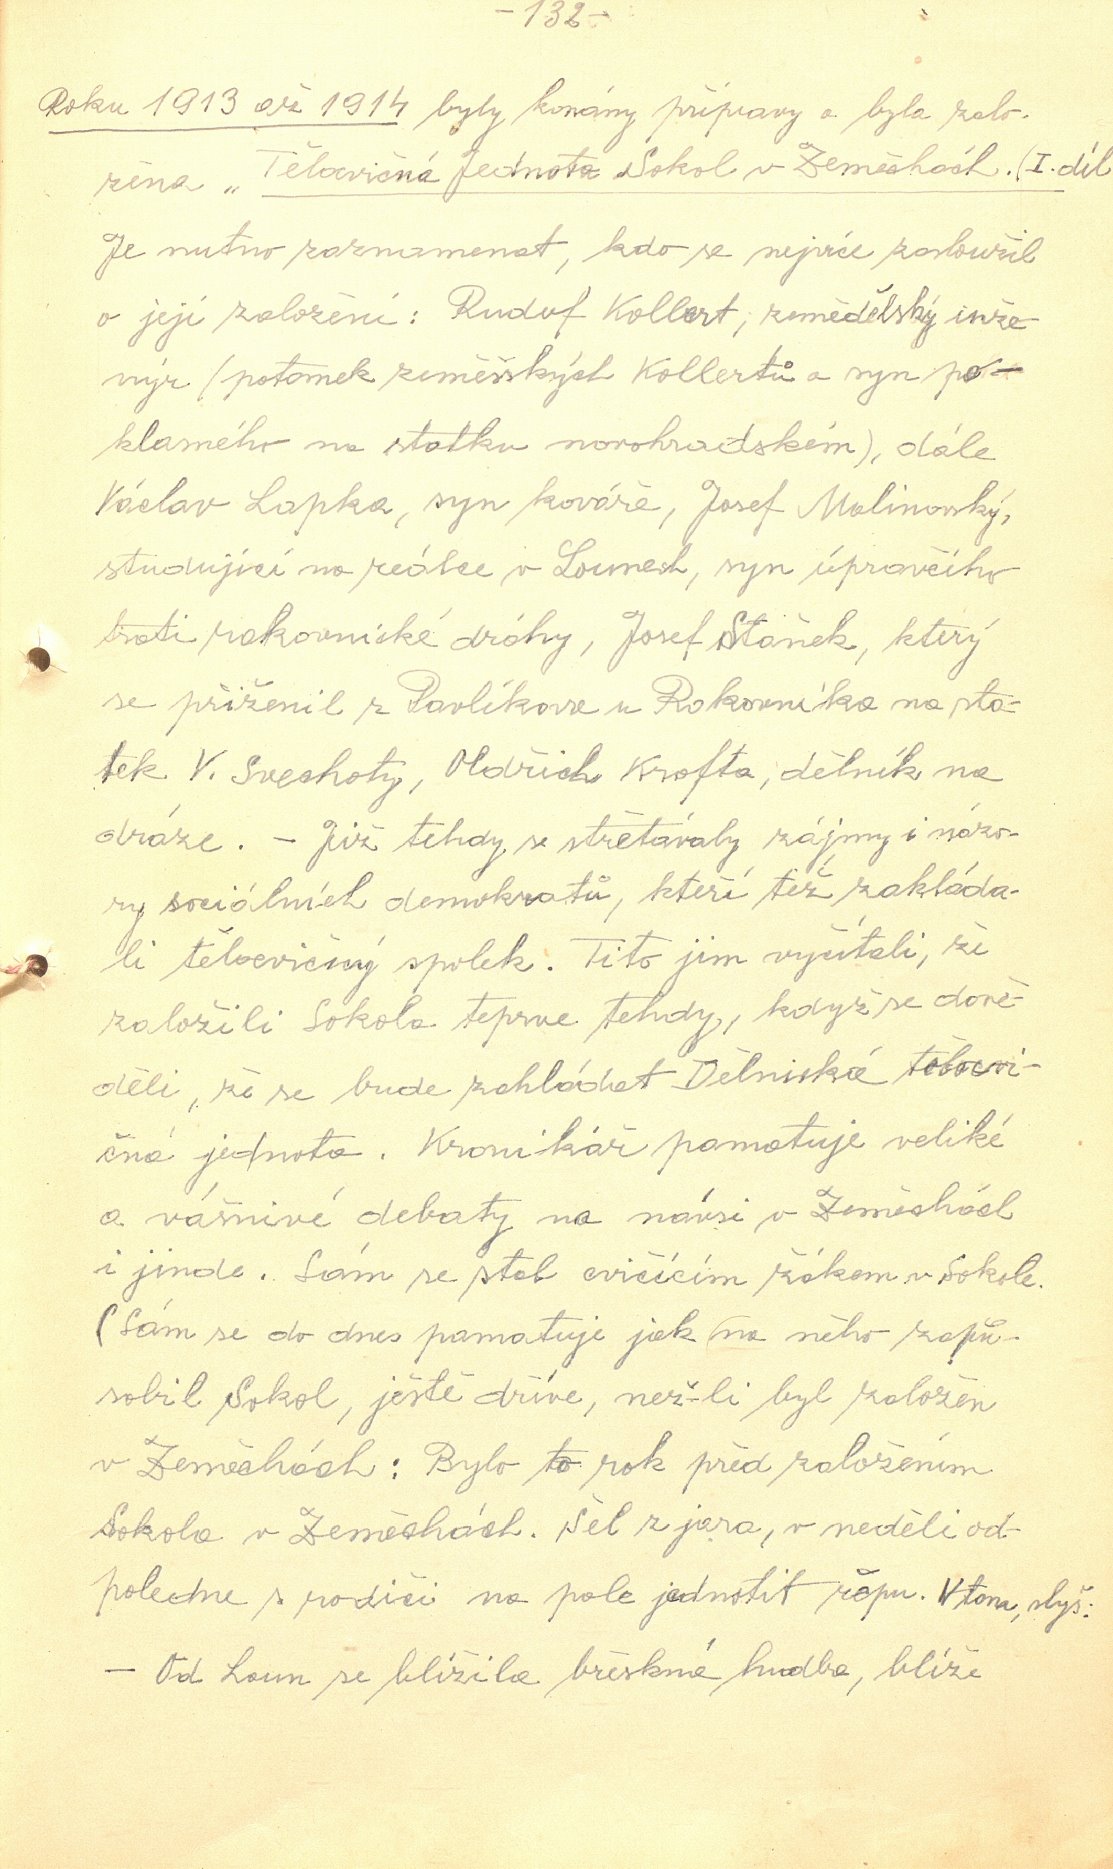 -132-
Roku 1913 až 1914 byly konány přípravy a byla zalo-
žena „Tělocvičná Jednota Sokol v Zeměchách. (I. díl
Je nutno zaznamenat, kdo se nejvíce zasloužil
o její založení: Rudof Kollert, zemědělský inže-
nýr (potomek zeměšských Kollertů a syn po-
klasného na statku novohradském), dále
Václav Lapka, syn kováře, Josef Malinovský,
studující na reálce v Lounech, syn úpravčího
trati rakovnické dráhy, Josef Staněk, který
se přiženil z Pavlíkova u Rakovníka na sta-
tek V. Svechoty, Oldřich Krofta, dělník na
dráze. – Již tehdy se střetávaly zájmy i názo-
ry sociálních demokratů, kteří též zakláda-
li tělocvičný spolek. Tito jim vyčítali, že
založili Sokola teprve tehdy, když se dově-
děli, že se bude zakládat Dělnická tělocvi-
čná jednota. Kronikář pamatuje veliké
a vášnivé debaty na návsi v Zeměchách
i jinde. Sám se stal cvičícím žákem v Sokole.
(Sám se do dnes pamatuje jak na něho zapů-
sobil Sokol, ještě dříve, než-li byl založen
v Zeměchách: Bylo to rok před založením
Sokola v Zeměchách. Šel z jara, v neděli od-
poledne s rodiči na pole jednotit řepu. V tom, slyš:
– Od Loun se blížila břeskná hudba, blíže